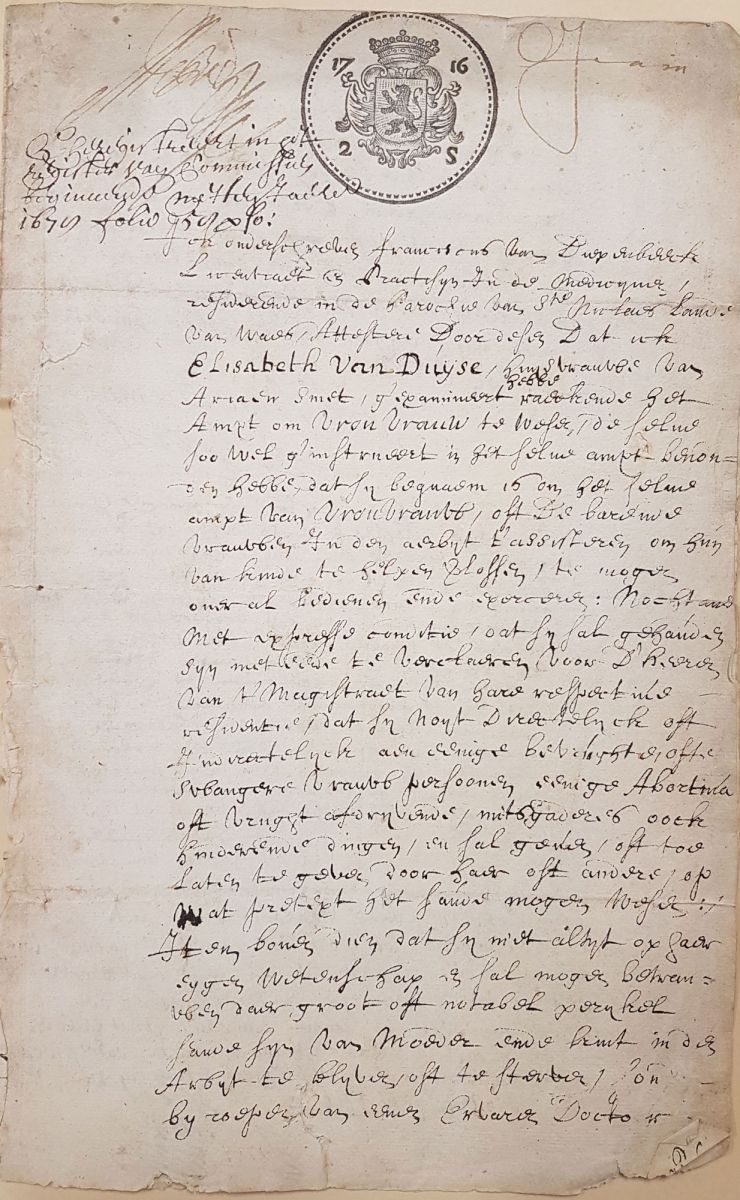 17 16
2 S
Gheregistreert in het
register van Commissien
beginnende met den Jaere
1679 folio
Ick onderschreven Franciscus van Diepenbeeck
Licentiaet en Practisyn In de Medecynen,
residerende in de Parochie van Ste Nicolaes Lande
van Waes, Attestere Door desen Dat ick
Elisabeth Van Duyse, huysvrauwe van
Adriaen Smet, g'examineert hebbe raeckende het
Ampt om Vrouvrauw te wesen, de selve
soo wel g'instrueert in het selve ampt bevon=
den hebbe, dat sy bequaem is om het selve
ampt van Vrouvrauw, oft De barende
vrauwen In den aerbyt t'assisteren om hun
van kinde te helpen Verlossen, te mogen
over al bedienen ende exerceren: Nochtans
Met expresse conditie, dat sy sal gehauden
syn met eede te verclaeren voor D'heeren
van t' Magistraet van hare respective
residentie, dat sy Noyt Directelyck oft
Indirectelyck aen eenige bevruchte, ofte
swangere vrauw persoonen eenige Abortiva
oft vrught afdryvende, mitsgaders oock
hinderende dingen, en sal geven, oft toe
Laten te geven door haer oft andere, op
Wat pretext het saude mogen wesen:
Item boven dien dat sy niet altyt op haer
eygen wetenschap en sal mogen betrau=
wen daer groot oft notabel perykel
saude syn van Moeder ende kint in den
Arbyt te blyven, oft te sterven, son
by roepen van eenen Ervaren Doctor